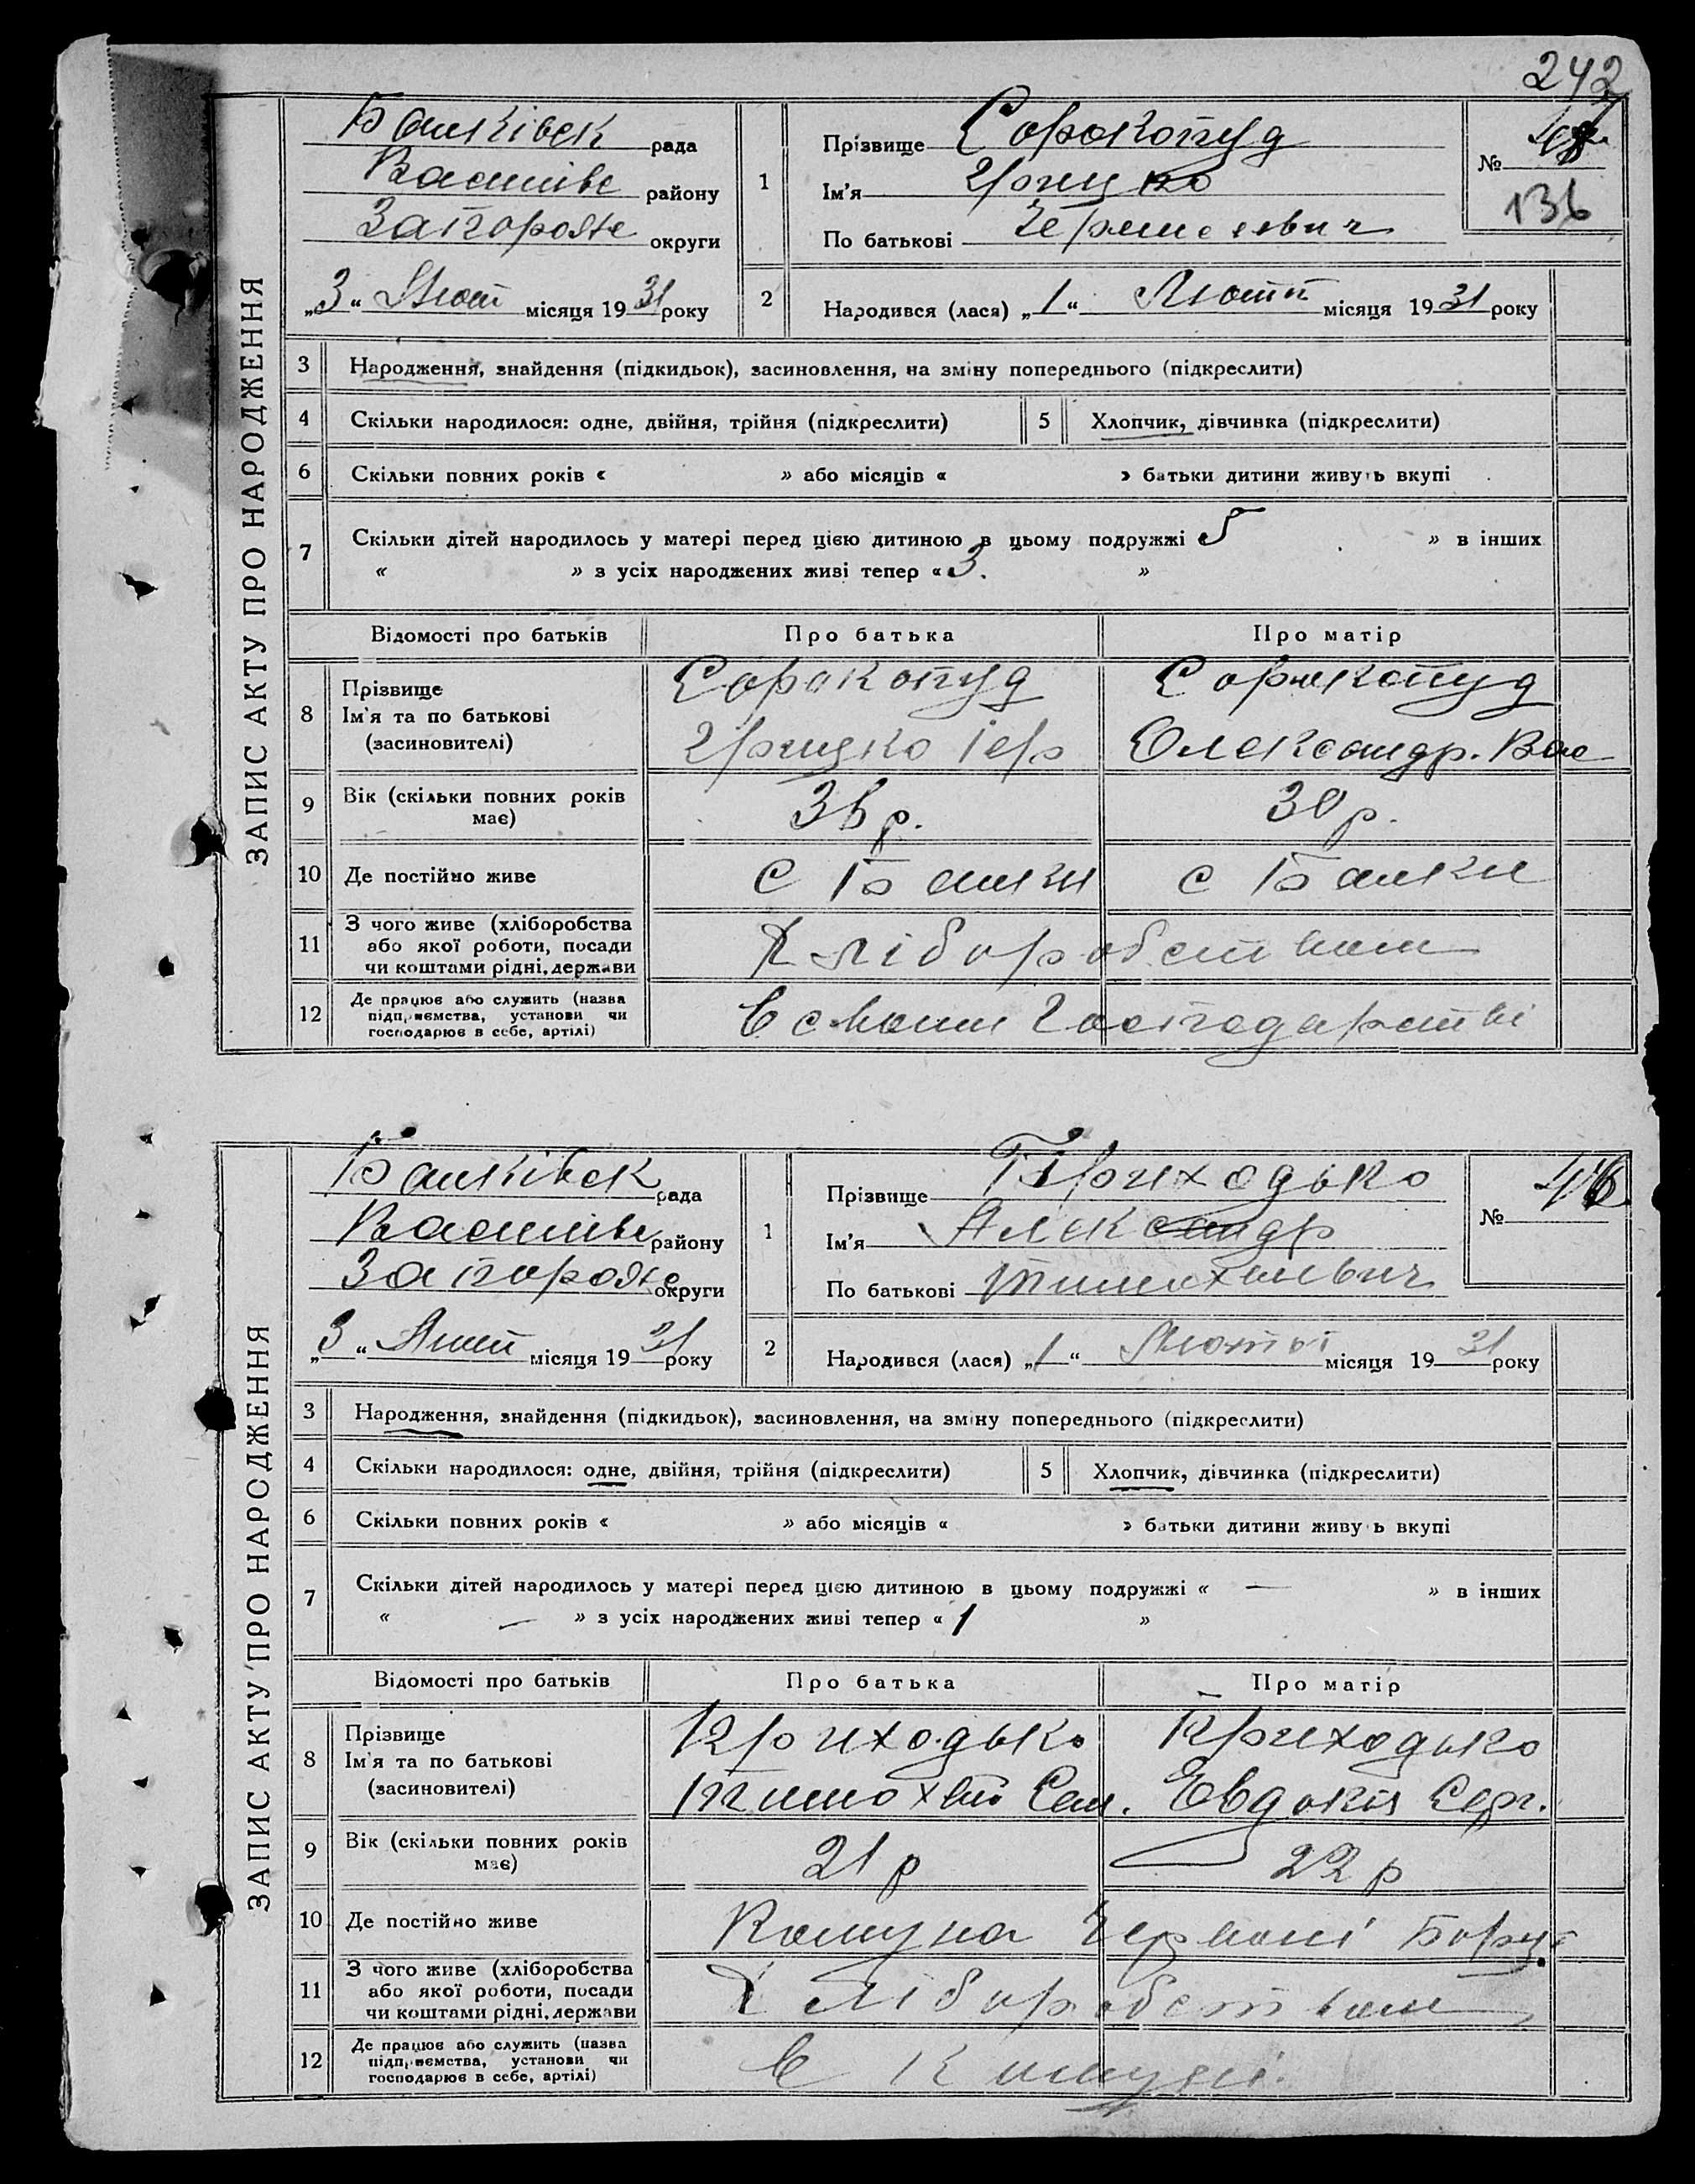 242
ЗАПИС АКТУ ПРО НАРОДЖЕННЯ
Балківск рада
Василівс району
Запорожс округи
„3“ Лют місяця 1931 року
1
Прізвище Сорокопуд
Ім'я Грицко
По батькові
№
136
2
Народився (лася) „1“ Лютий місяця 1931 року
3 Народження, знайдення (підкидьок), засиновлення, на зміну попереднього (підкреслити)
4 Скільки народилося: одне, двійня, трійня (підкреслити) 5 Хлопчик, дівчинка (підкреслити)
6 Скільки повних років « » або місяців « » батьки дитини живуть вкупі
7 Скільки дітей народилось у матері перед цією дитиною в цьому подружжі 5 » в інших
« » з усіх народжених живі тепер « 3. »
Відомості про батьків Про батька Про матір
8 Прізвище Сорокопуд Сорокопуд
Ім'я та по батькові Грицко Іер Олександр. Вас
(засновителі)
9 Вік (скільки повних років має) 36 р. 30 р.
10 Де постійно живе с Балки с Балки
11 З чого живе (хліборобства або якої роботи, посади чи коштами рідні, держави Хліборобством
12 Де працює або служить (назва підприємства, установи чи господарює в себе, артілі) В своим Господарстві
ЗАПИС АКТУ ПРО НАРОДЖЕННЯ
Балківск рада
Василівс району
Запорожс округи
„3“ Лют місяця 1931 року
1
Прізвище Приходько
Ім'я Александр
По батькові
№ 46
2
Народився (лася) „1“ місяця 1931 року
3 Народження, знайдення (підкидьок), засиновлення, на зміну попереднього (підкреслити)
4 Скільки народилося: одне, двійня, трійня (підкреслити) 5 Хлопчик, дівчинка (підкреслити)
6 Скільки повних років « » або місяців « » батьки дитини живуть вкупі
7 Скільки дітей народилось у матері перед цією дитиною в цьому подружжі « — » в інших
« — » з усіх народжених живі тепер « 1 »
Відомості про батьків Про батька Про матір
8 Прізвище Приходько Приходько
Ім'я та по батькові Тимохвій Сем. Євдокія Серг.
(засиновителі)
9 Вік (скільки повних років має) 21 р 22 р
10 Де постійно живе Комуна Червоні
11 З чого живе (хліборобства або якої роботи, посади чи коштами рідні, держави Хліборобством
12 Де працює або служить (назва підприємства, установи чи господарює в себе, артілі) В Комуні.